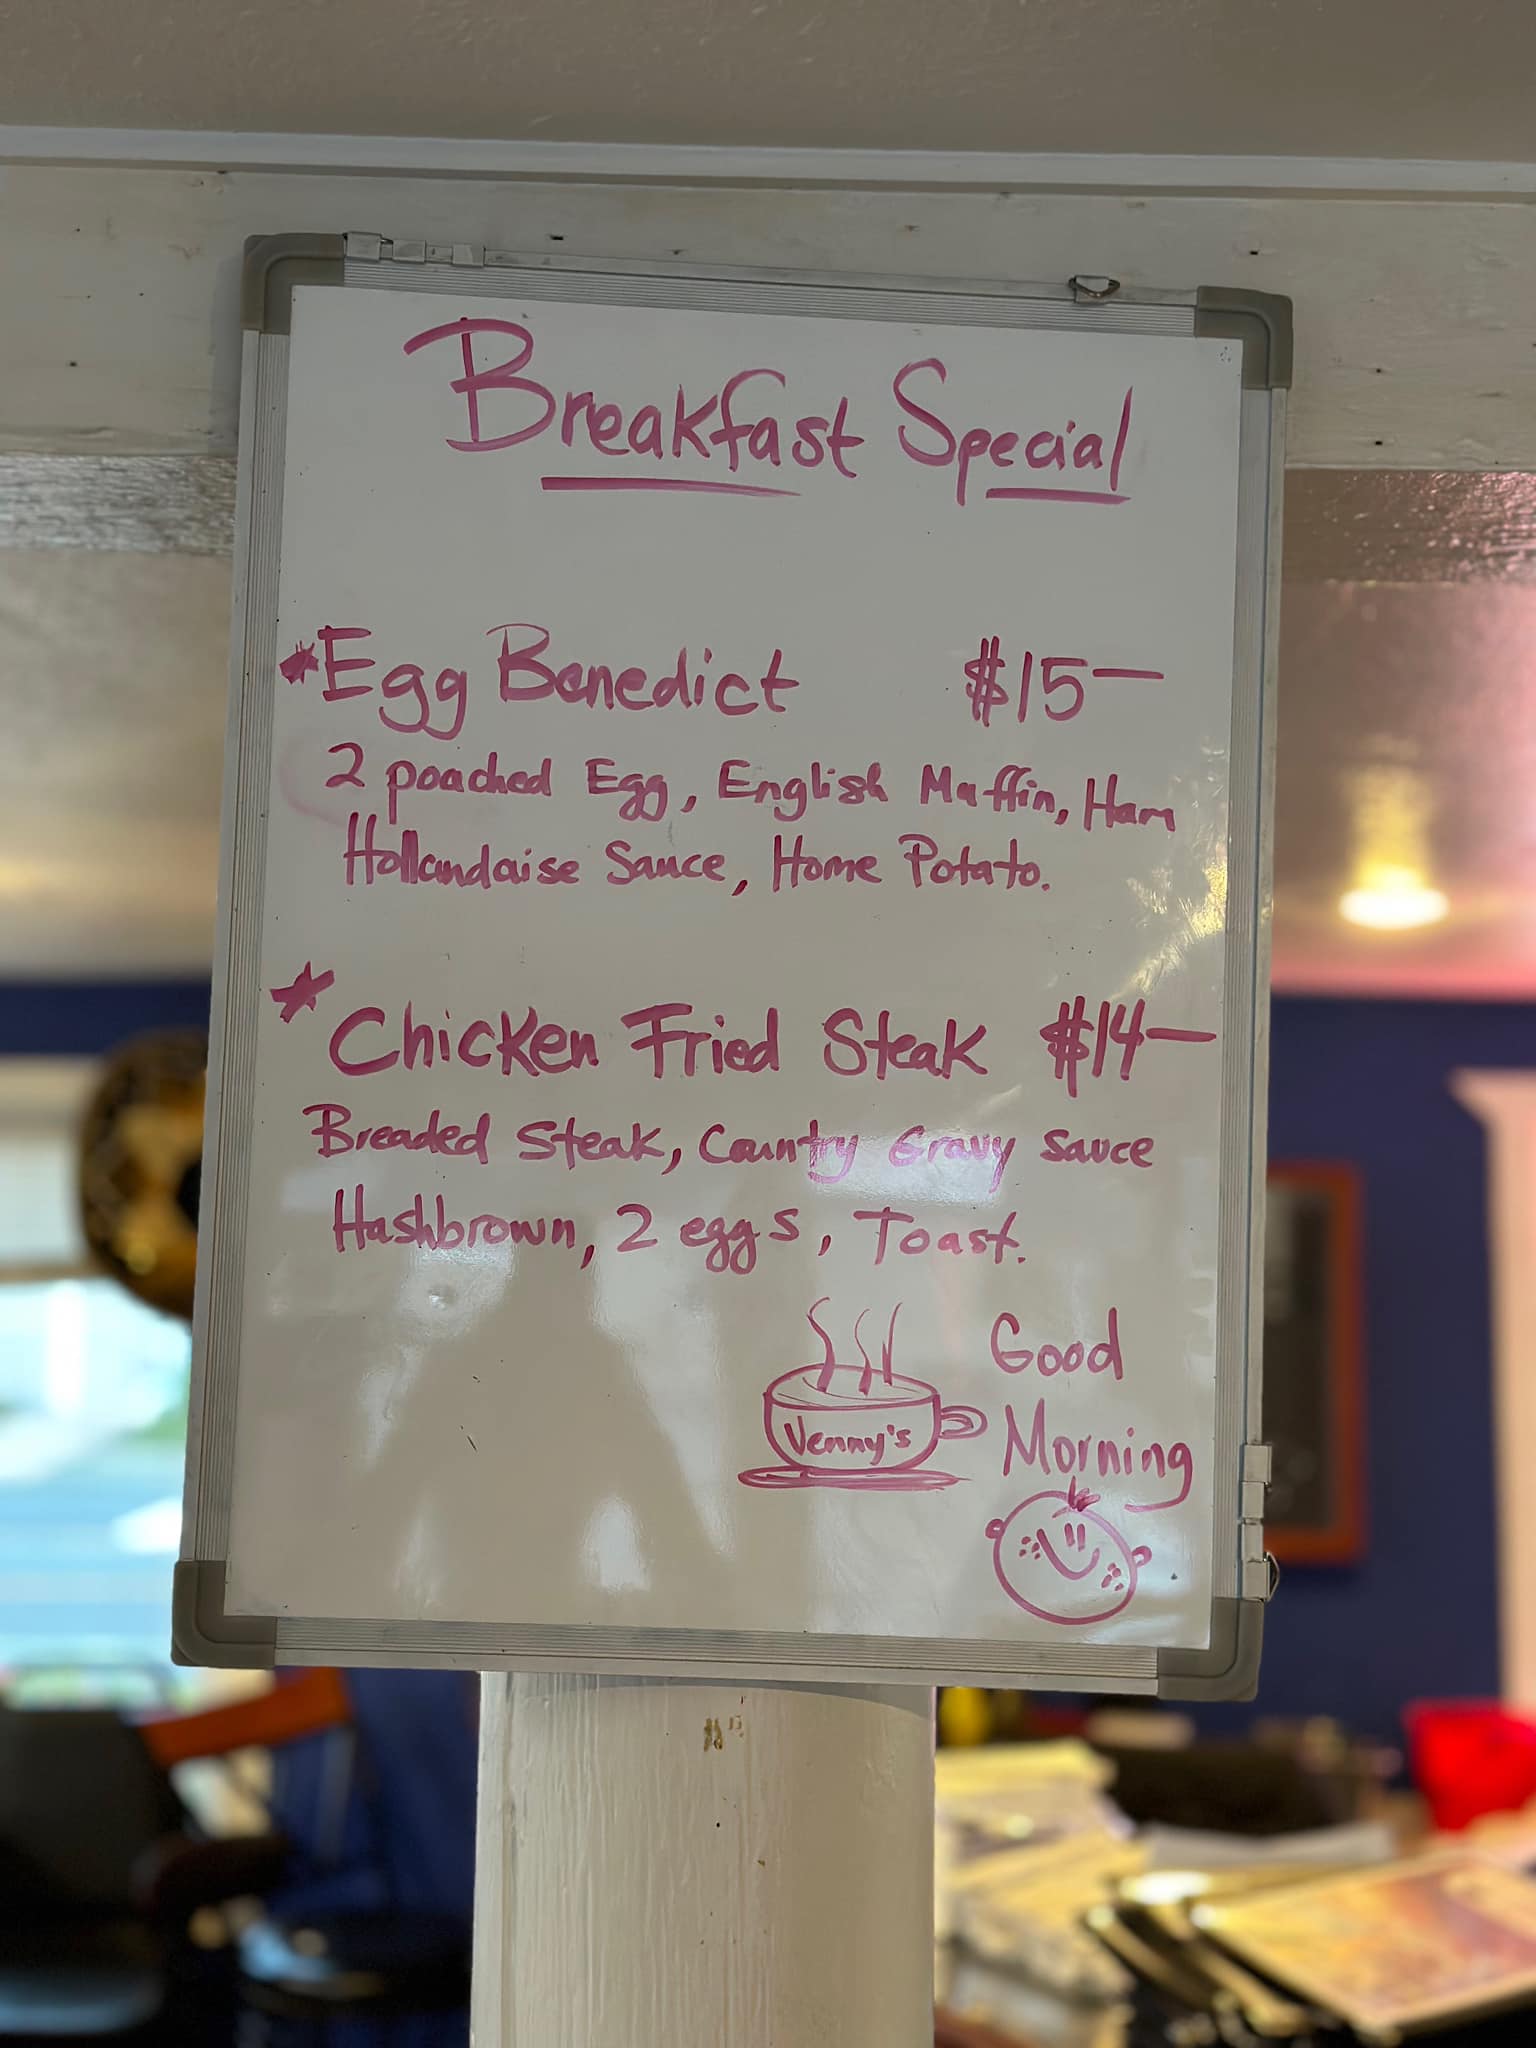 Breakfast Special
*Egg Benedict $15—
2 poached Egg, English Muffin, Ham
Hollandaise Sauce, Home Potato.
* Chicken Fried Steak $14—
Breaded Steak, Country Gravy Sauce
Hashbrown, 2 eggs, Toast.
Good
Morning
Venny's